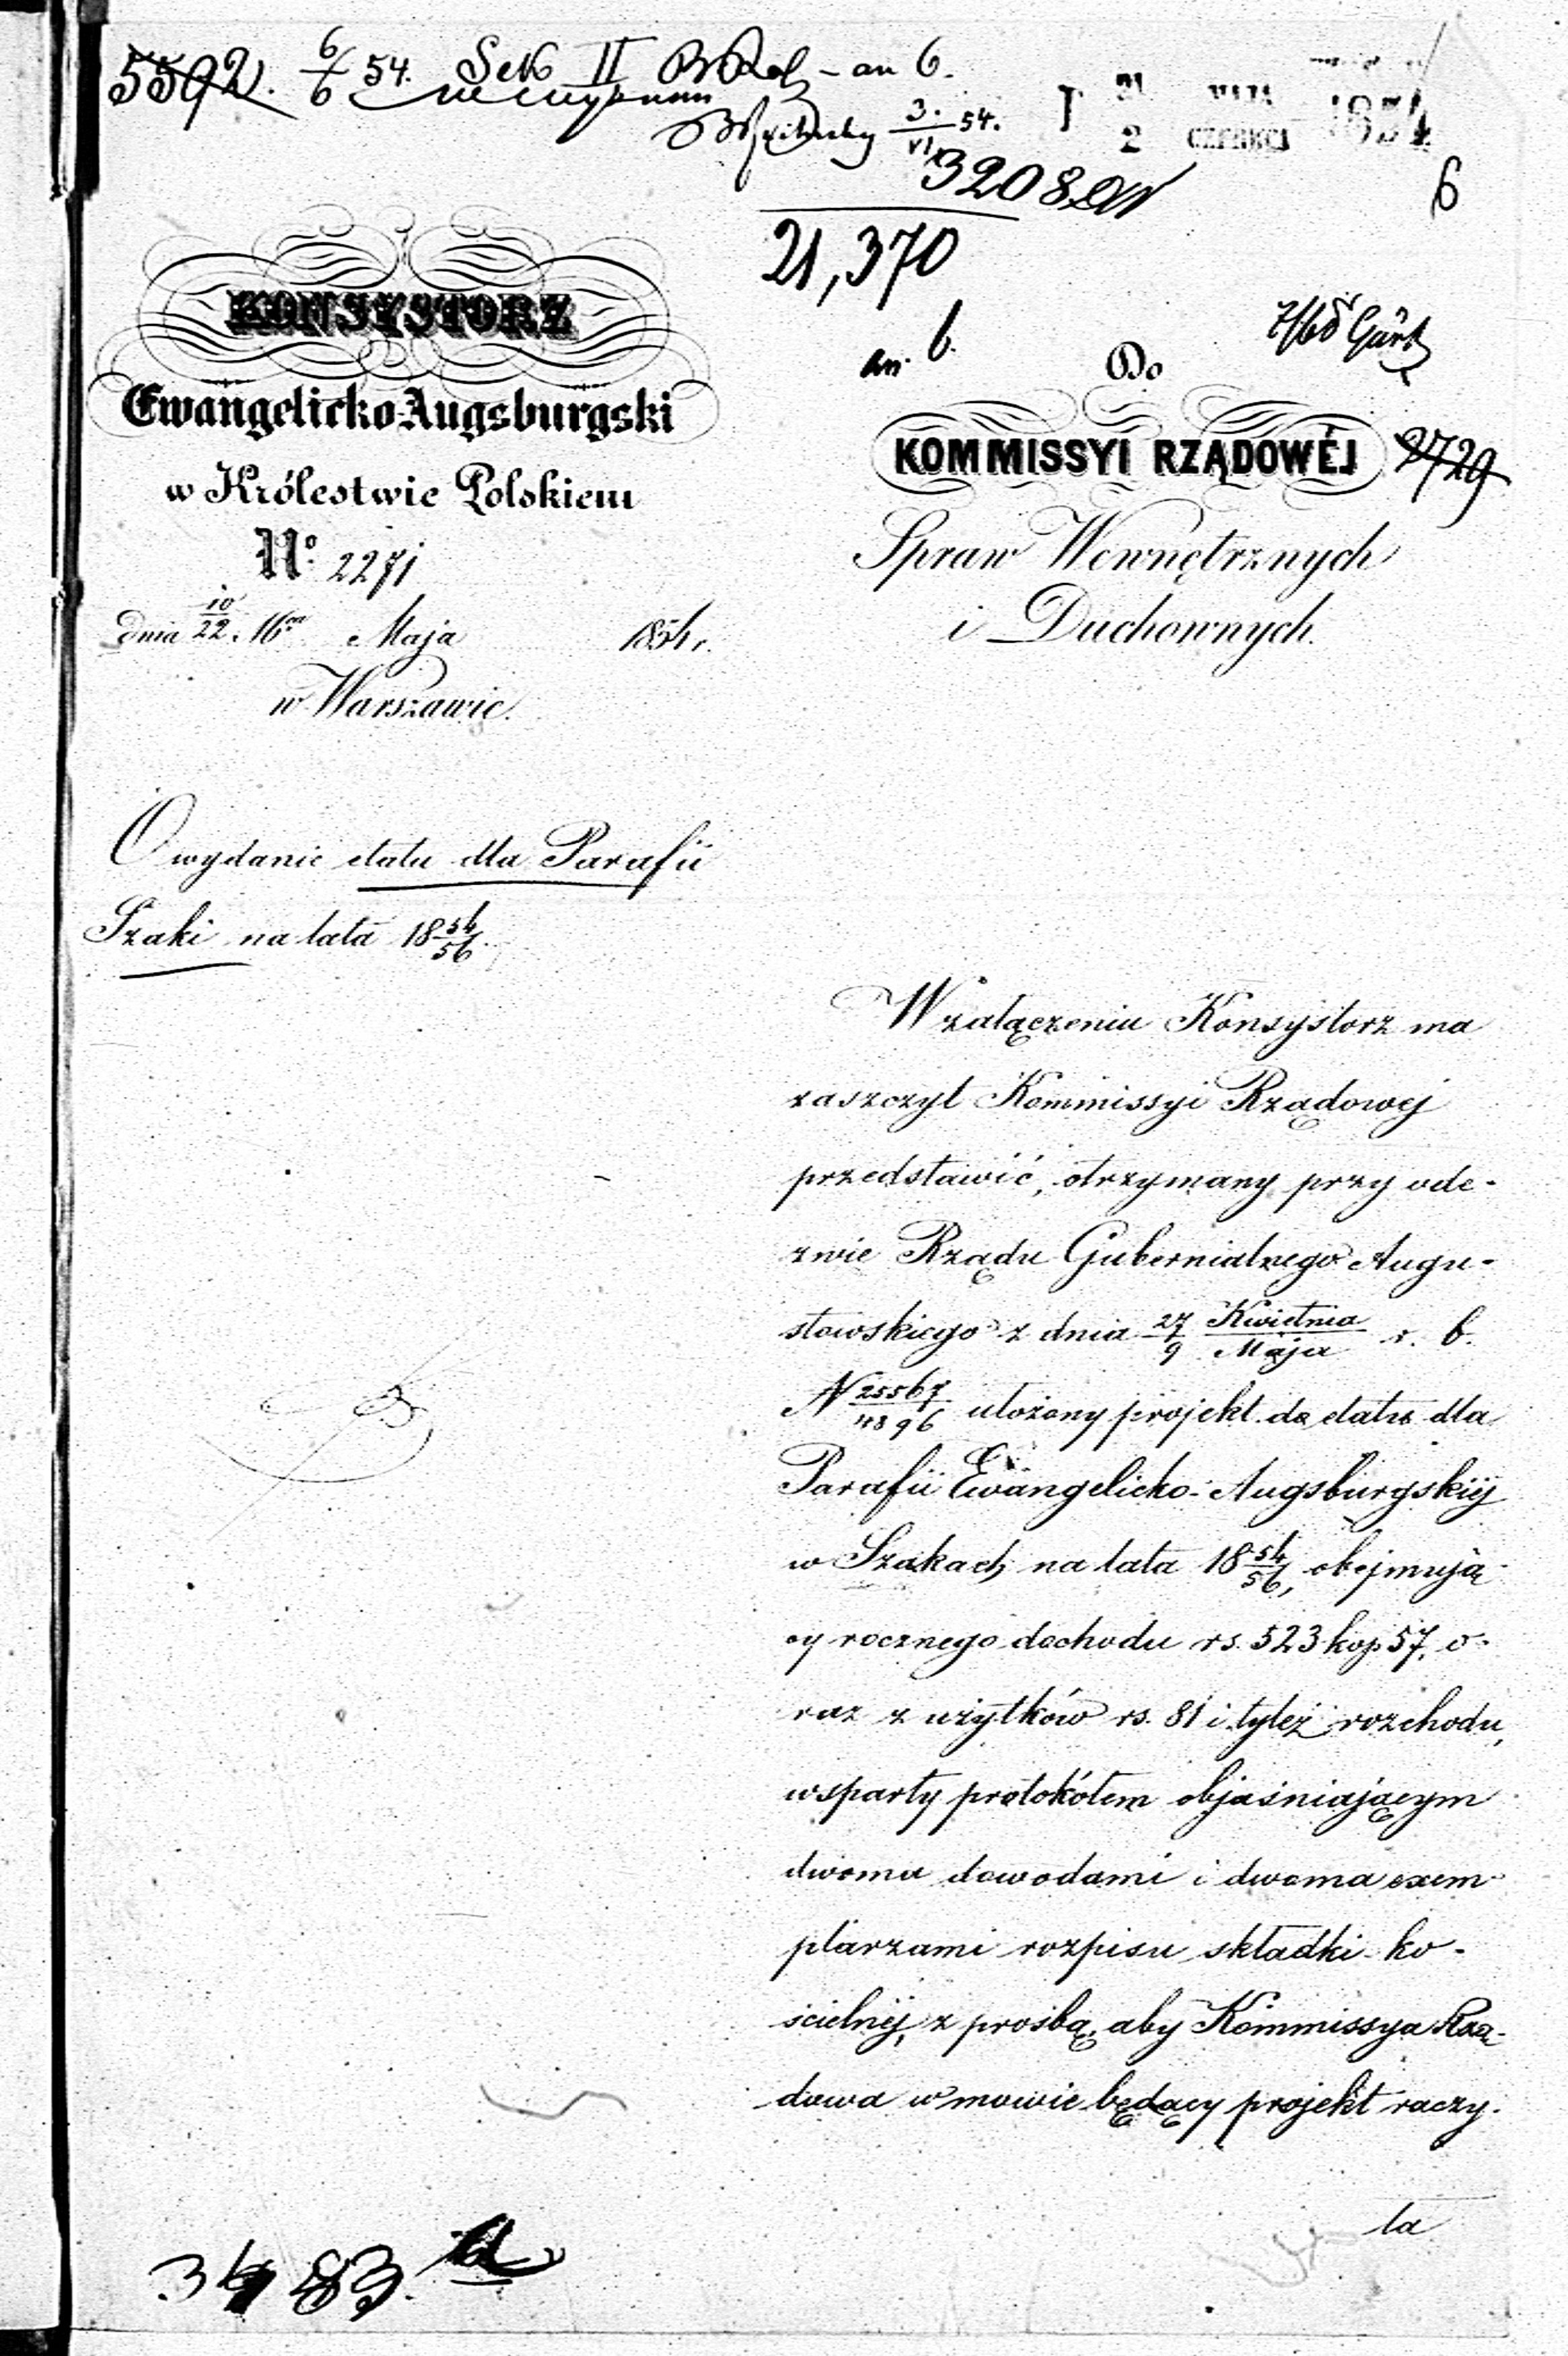 5592. 6/6 54. Sek II an 6.
3./VI 54. 21 MAJA 1854
2 CZERWCA
3208
6
21,370
an. 6.
KONSYSTORZ
Ewangelicko-Augsburgski
w Królestwie Polskiem
No. 2271
dnia 10/22 Maja 1854 r.
w Warszawie.
Do
KOMMISSYI RZĄDOWÉJ 2729
Spraw Wewnętrznych
i Duchownych.
O wydanie etatu dla Parafii
Szaki na lata 18 54/56.
W załączeniu Konsystorz ma
zaszczyt Kommissyi Rządowej
przedstawić, otrzymany przy ode-
zwie Rządu Gubernialnego Augu-
stowskiego z dnia 27/9 Kwietnia/Maja r. b.
N 25567/4896 ułożony projekt do etatu dla
Parafii Ewangelicko-Augsburgskiij
w Szakach na lata 18 54/56, obejmują-
cy rocznego dochodu rs. 523 kop 57, o-
raz z użytków rs. 81 i tyleż rozchodu,
wsparty protokółem objaśniającym
dwoma dowodami i dwoma exem-
plarzami rozpisu składki ko-
ścielnéj, z prośbą, aby Kommissya Rzą-
dowa w mowie będący projekt raczy-
ła
3483. a